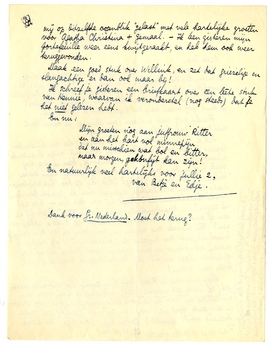 mij op hetzelfde oogenblik gelast met vele hartelijke groeten
voor Agatha Christina + gemaal. — Ik ben gisteren mijn
portefeuille weer een kwijtgeraakt en heb hem ook weer
teruggevonden.
Maak een goed stuk over Willink, en zet dat griezelige en
slangachtige er dan ook maar bij.
Ik schreef je gisteren een briefkaart over een lets stuk
van Rennie, waarvan ik veronderstel (nog steeds) dat je
het niet gelezen hebt.
En nu:
Mijn groeten nog aan juffrouw Ritter
en aan het hart vol
dat nu misschien wat bol en bitter,
maar morgen gekonfijt kan zijn!
En natuurlijk veel hartelijks voor jullie 2,
van Betje en Edje.
Dank voor Gr. Nederland. Moet het terug?